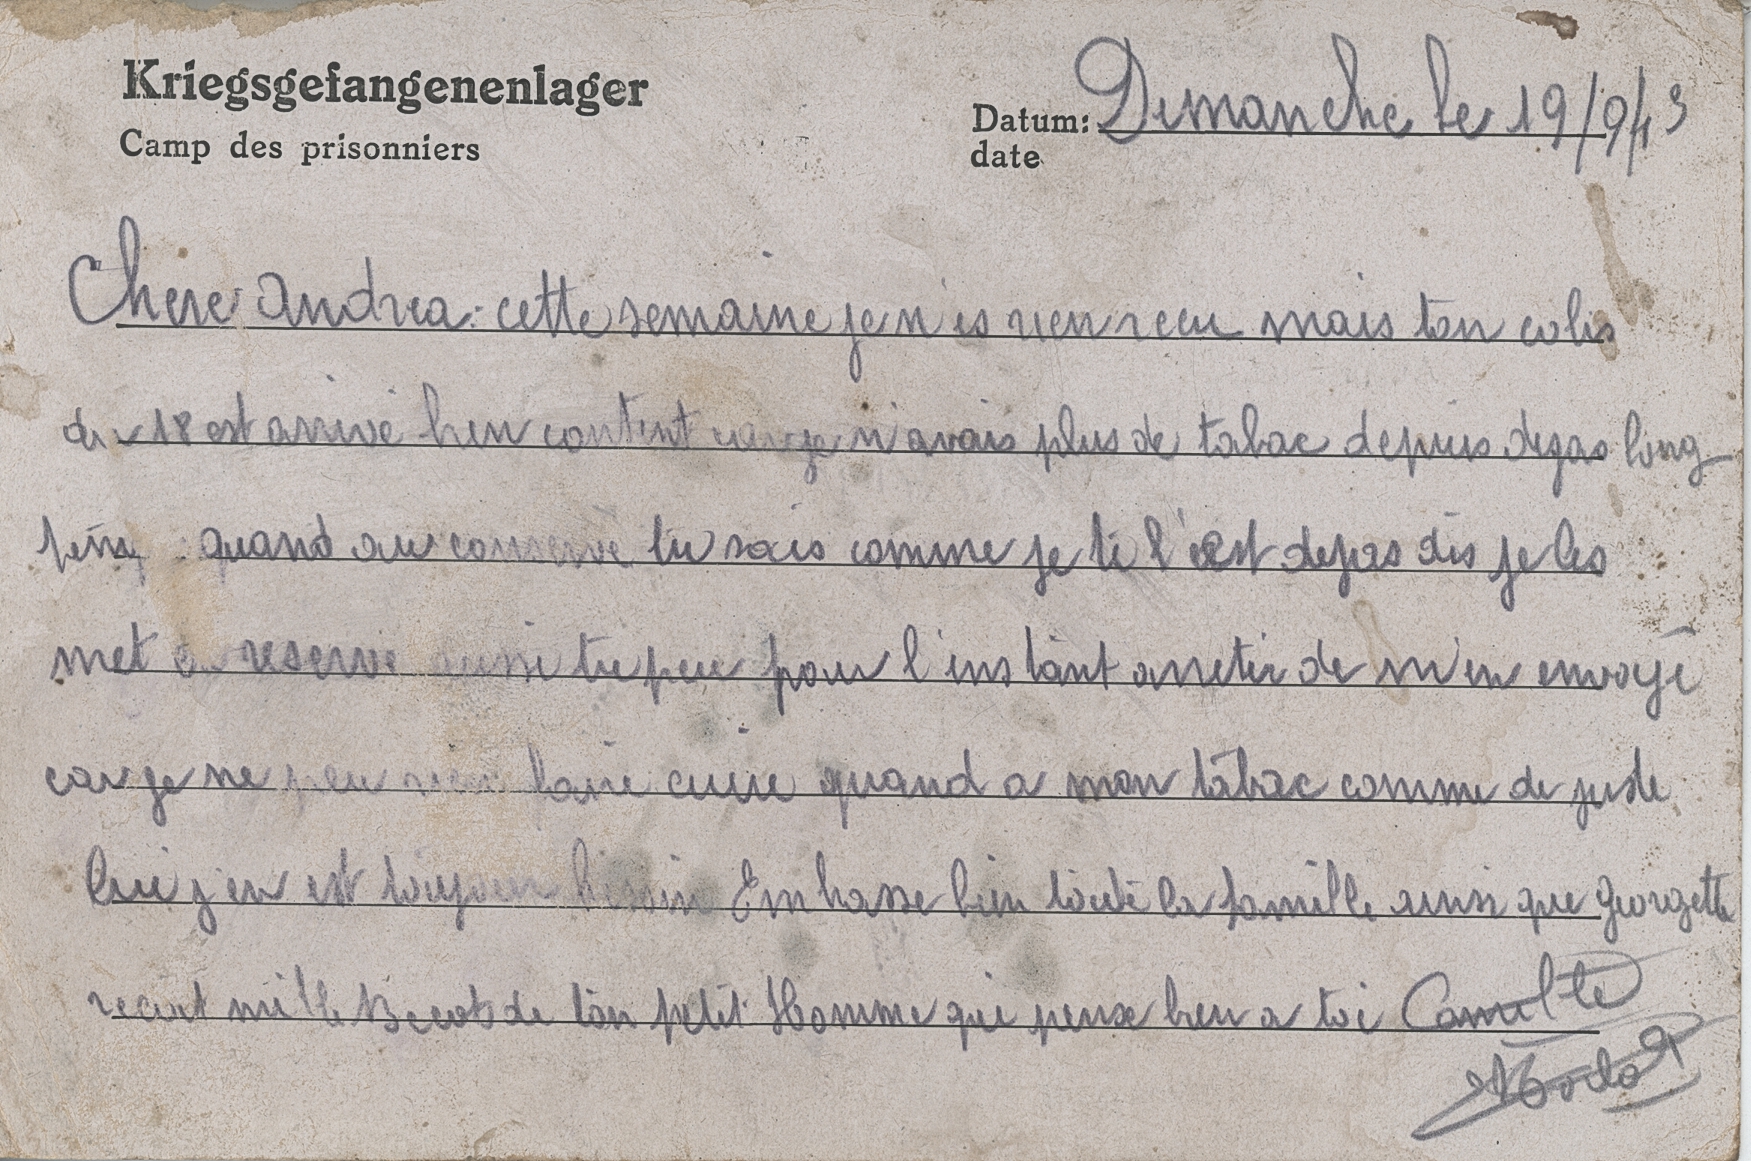 Kriegsgefangenenlager
Camp des prisonniers
Datum: Dimanche le 19/9/43
date
Chere Andrea: cette semaine je n'es rien recu mais ton colis
du 18 est arrivé bien content car je n'avais plus de tabac depuis depas long
quand au conserve tu sais comme je te l'est depas dis je les
met en reserve aussi tu peu pour l'instant arreter de m'en envoyé
car je ne peu rien faire cuire quand a mon tabac comme de juste
lui j'en est toujour besoin Embrasse bien toute la famille ainsi que Georgette
recoit mille Becots de ton petit Homme qui pense bien a toi Camille